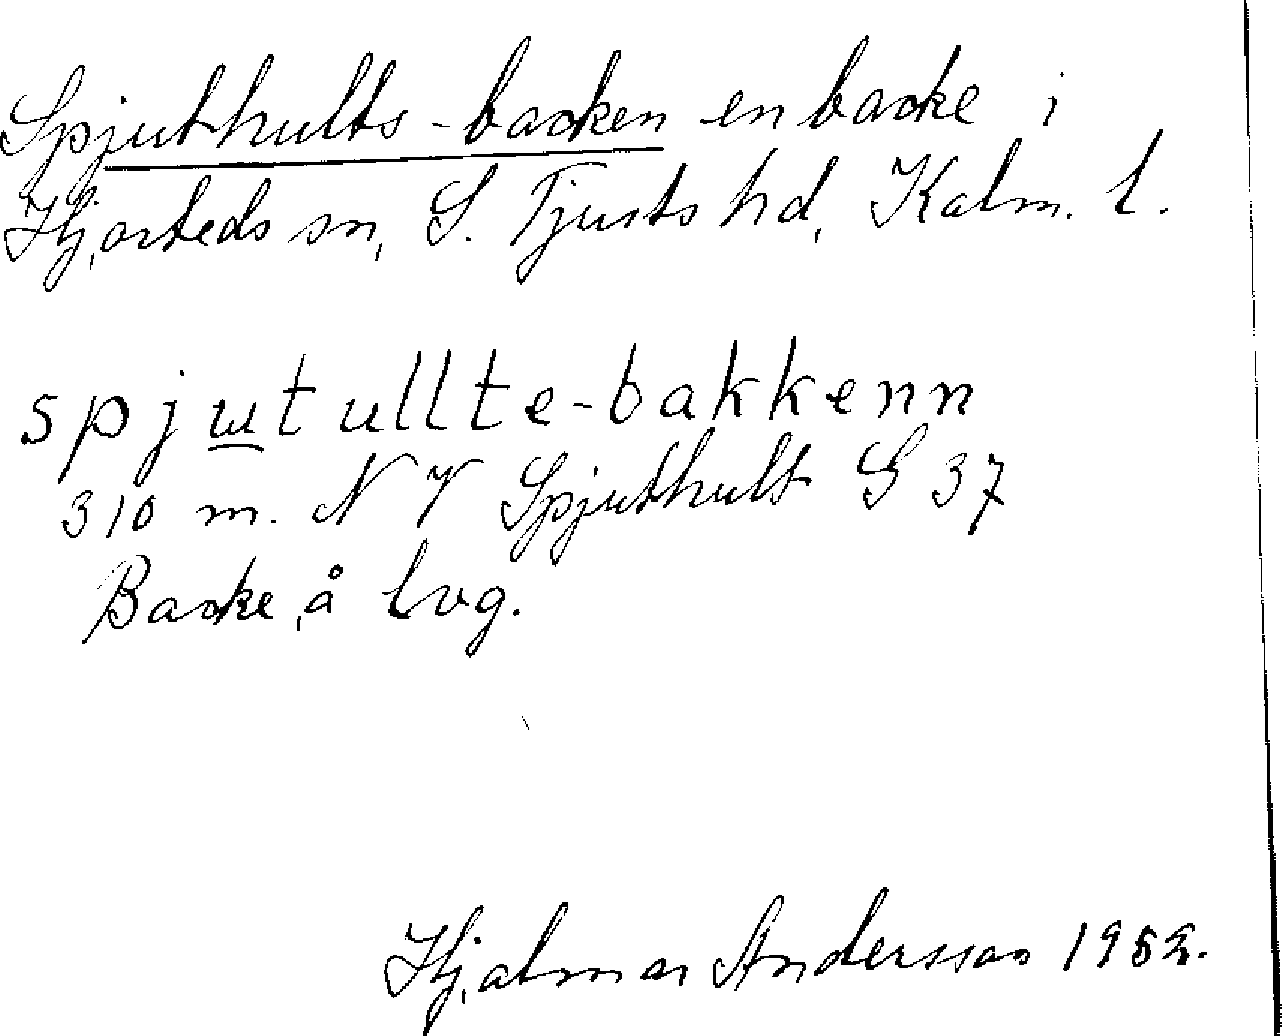 Spjuthults-backen en backe i
Hjorteds sn, S. Tjusts hd, Kalm. l.
spjɯtullte-bakkenn
310 m. NV Spjuthult S 37
Backe å lvg.
Hjalmar Andersson 1952.